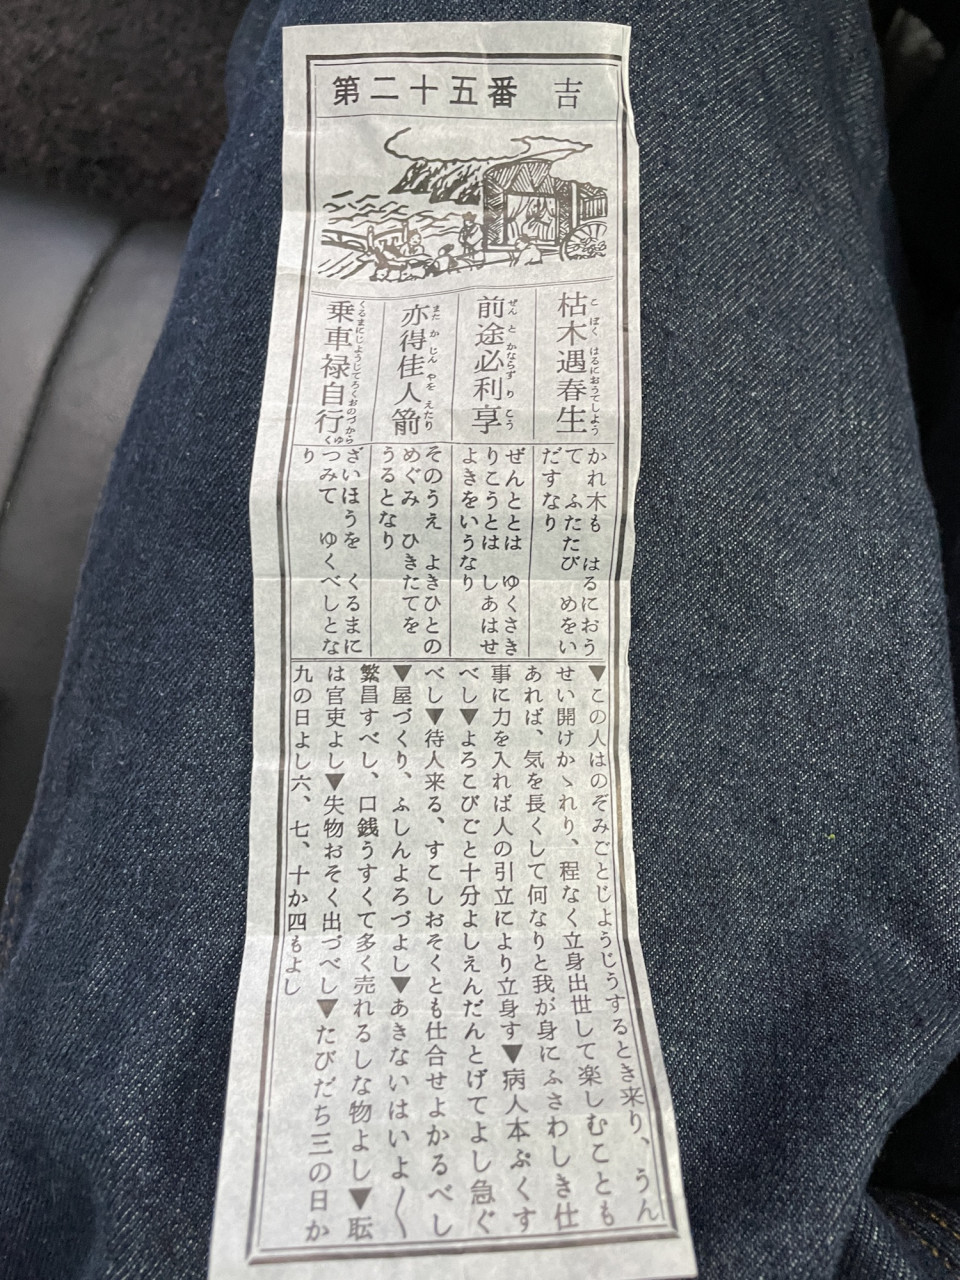 第二十五番 吉
枯木遇春生
こぼくはるにおうてしょう
前途必利享
ぜんとかならずりこう
亦得佳人箭
またかじんやをえたり
乗車禄自行
くるまにじょうじてろくおのづからゆく
かれ木も はるにおう
て ふたたび めをい
だすなり
ぜんととは ゆくさき
りこうとは しあはせ
よきをいうなり
そのうえ よきひとの
めぐみ ひきたてを
うるとなり
ざいほうを くるまに
つみて ゆくべしとな
り
▼この人はのぞみごとじようじうするとき来り、うん
せい開けかゝれり、程なく立身出世して楽しむことも
あれば、気を長くして何なりと我が身にふさわしき仕
事に力を入れば人の引立により立身す▼病人本ぷくす
べし▼よろこびごと十分よしえんだんとげてよし急ぐ
べし▼待人来る、すこしおそくとも仕合せよかるべし
▼屋づくり、ふしんよろづよし▼あきないはいよ〱
繁昌すべし、口銭うすくて多く売れるしな物よし▼転
は官吏よし▼失物おそく出づべし▼たびだち三の日か
九の日よし六、七、十か四もよし